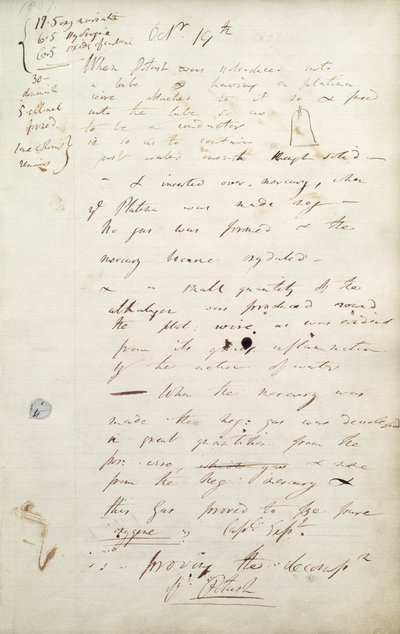 17.5 oxymuriate
6.5 hydrogen
30
5
formed
remains
Octr. 19th
When Potash was introduced into
a tube having a platina
wire attached to it so & fused
into the tube so as
to be a conductor
ie so as to contain
just water enough though solid —
— & inserted over mercury, when
ye Platina was made neg —
No gas was formed & the
mercury became oxydated —
& a small quantity of the
alkaligen was produced round
the plat: wire as was evident
from its quick inflammation
by the action of water
— When the mercury was
made the neg: gas was developed
in great quantities from the
pos: wire, & none
from the neg mercury &
this gas proved to be pure
oxygene Capl. Expt.
proving the decompn
of Potash